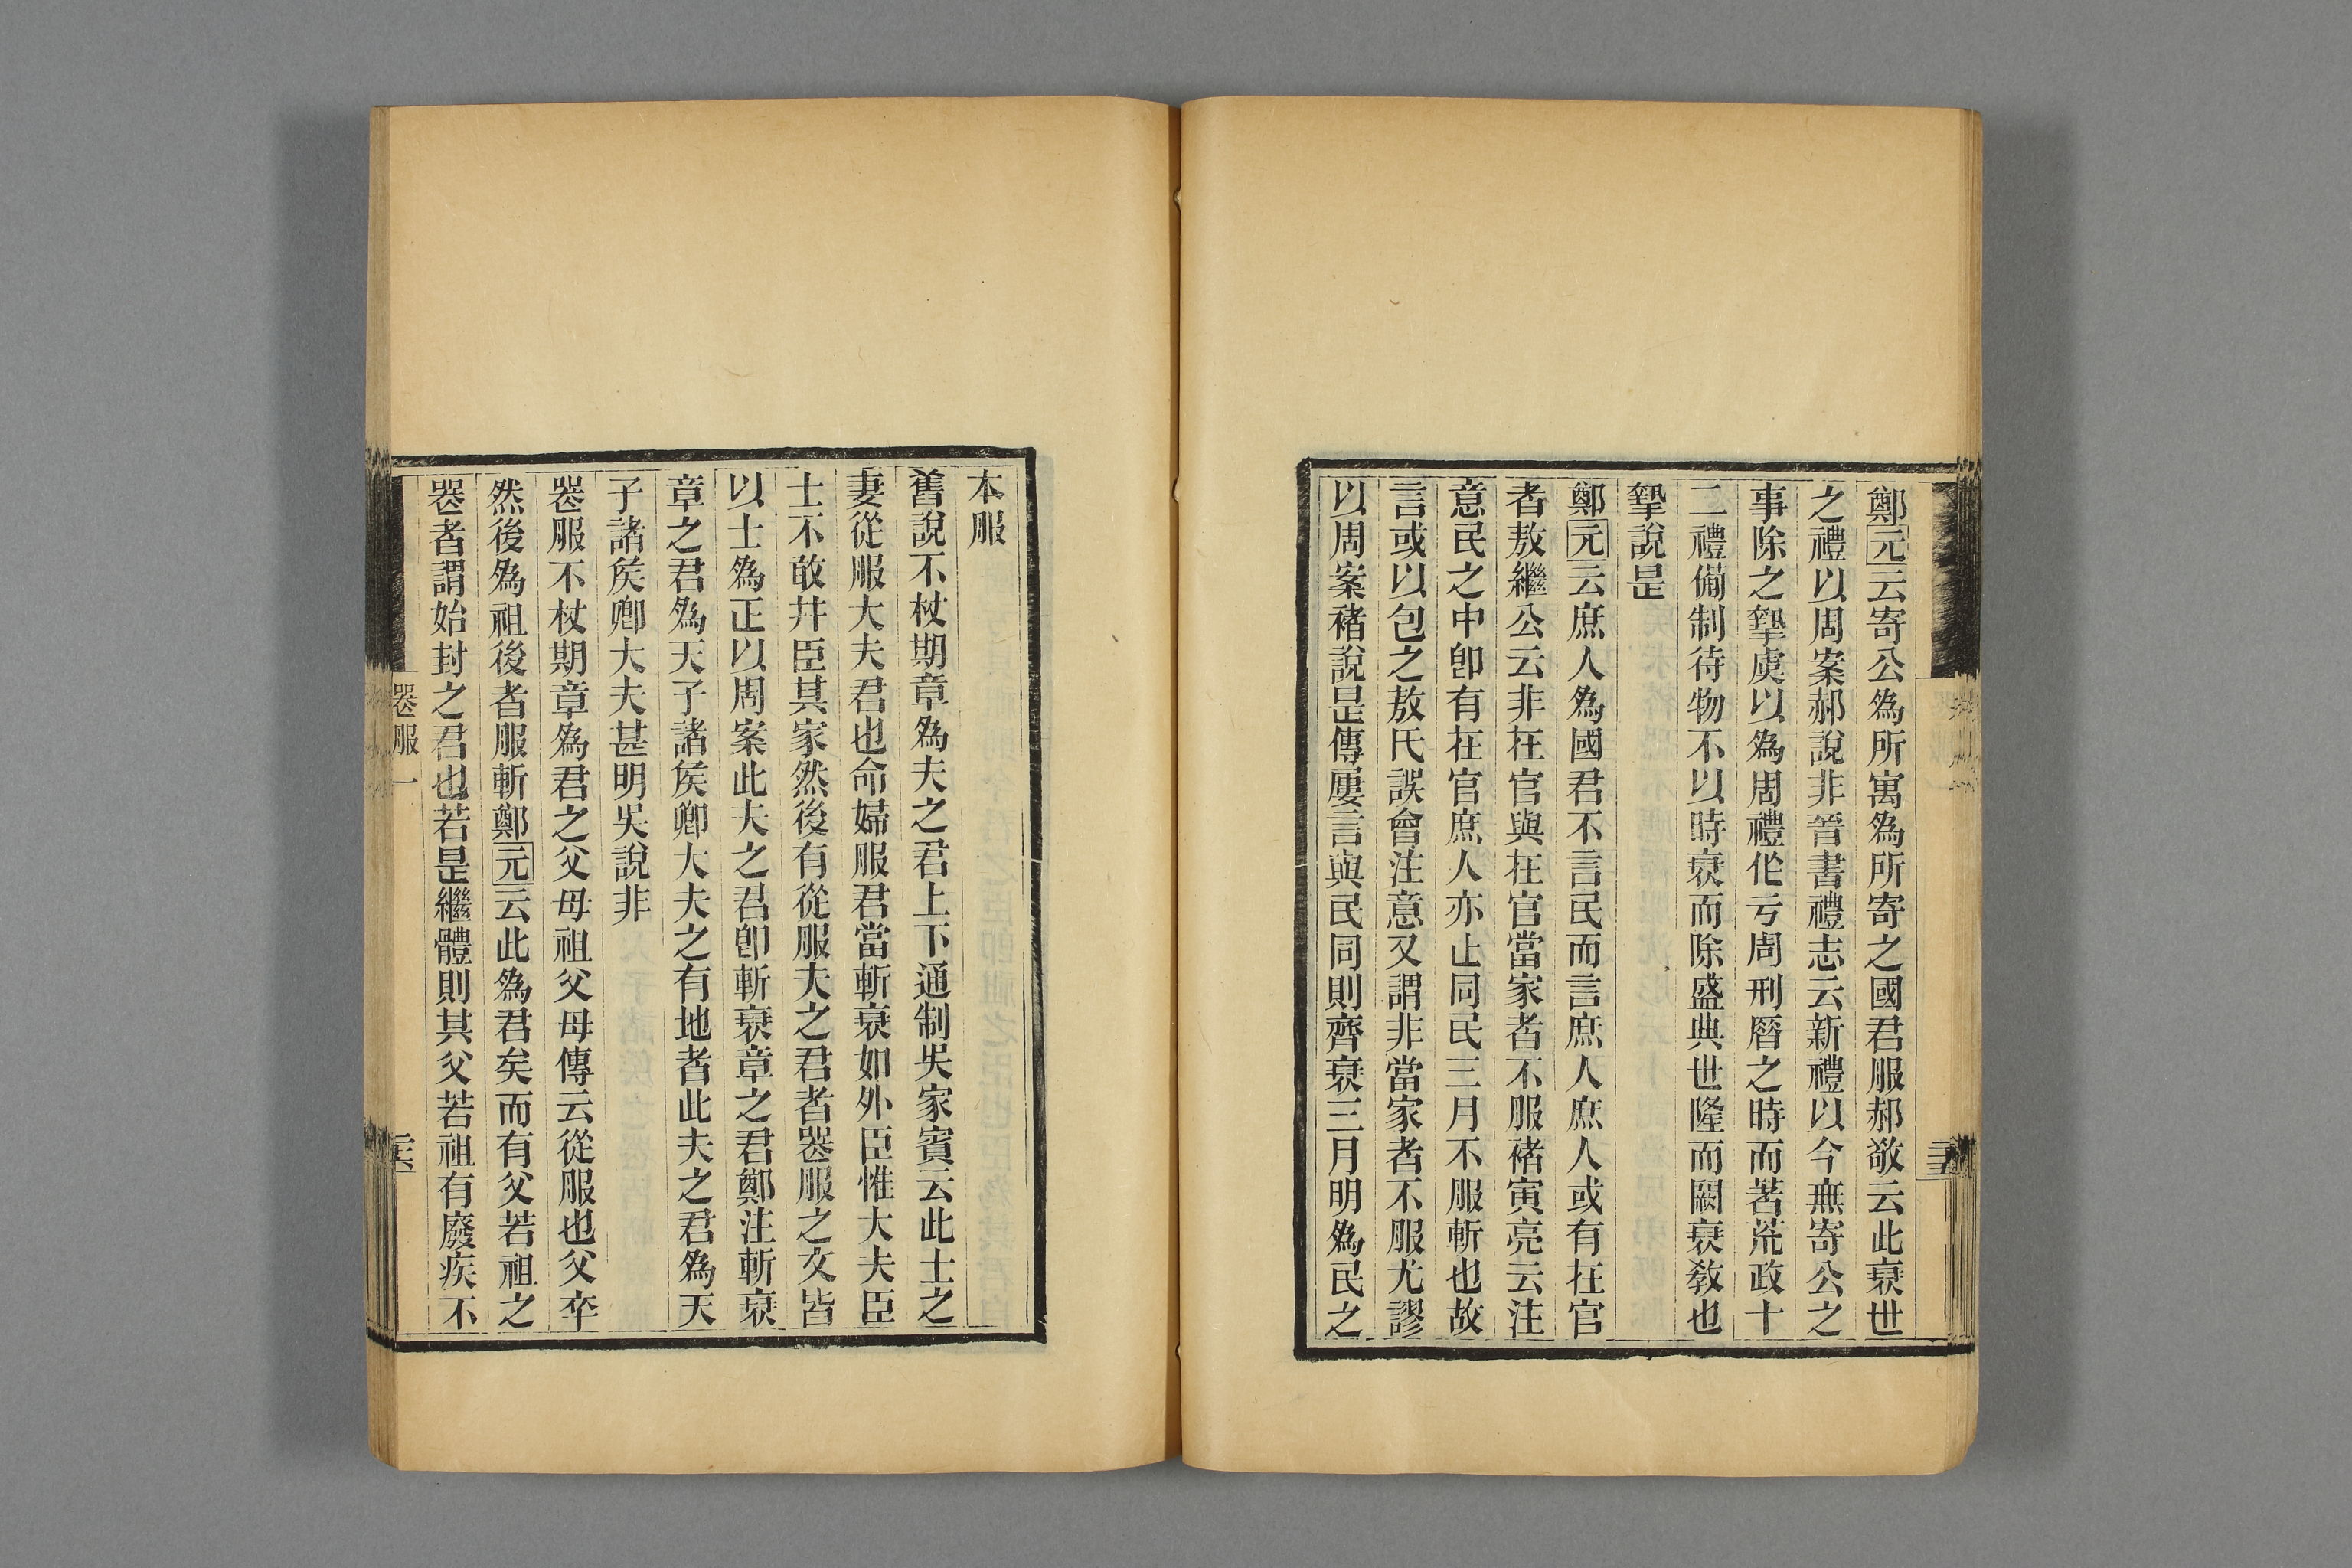 鄭元云寄公爲所寓爲所寄之國君服郝敬云此衰世
之禮以周案郝說非晉書禮志云新禮以今無寄公之
事除之摯虞以爲周禮作亏周刑厝之時而著荒政十
二禮備制待物不以時衰而除盛典世隆而闕衰敎也
摯說是
鄭元云庶人爲國君不言民而言庶人庶人或有在官
者敖繼公云非在官與在官當家者不服褚寅亮云注
意民之中卽有在官庶人亦止同民三月不服斬也故
言或以包之敖氏誤會注意又謂非當家者不服尤謬
以周案褚說是傳屢言與民同則齊衰三月明爲民之
本服
舊說不杖期章爲夫之君上下通制吳家賓云此士之
妻從服大夫君也命婦服君當斬衰如外臣惟大夫臣
士不敢并臣其家然後有從服夫之君者喪服之文皆
以士爲正以周案此夫之君卽斬衰章之君鄭注斬衰
章之君爲天子諸侯卿大夫之有地者此夫之君爲天
子諸侯卿大夫甚明吳說非
喪服不杖期章爲君之父母祖父母傳云從服也父卒
然後爲祖後者服斬鄭元云此爲君矣而有父若祖之
喪者謂始封之君也若是繼體則其父若祖有廢疾不
喪服一